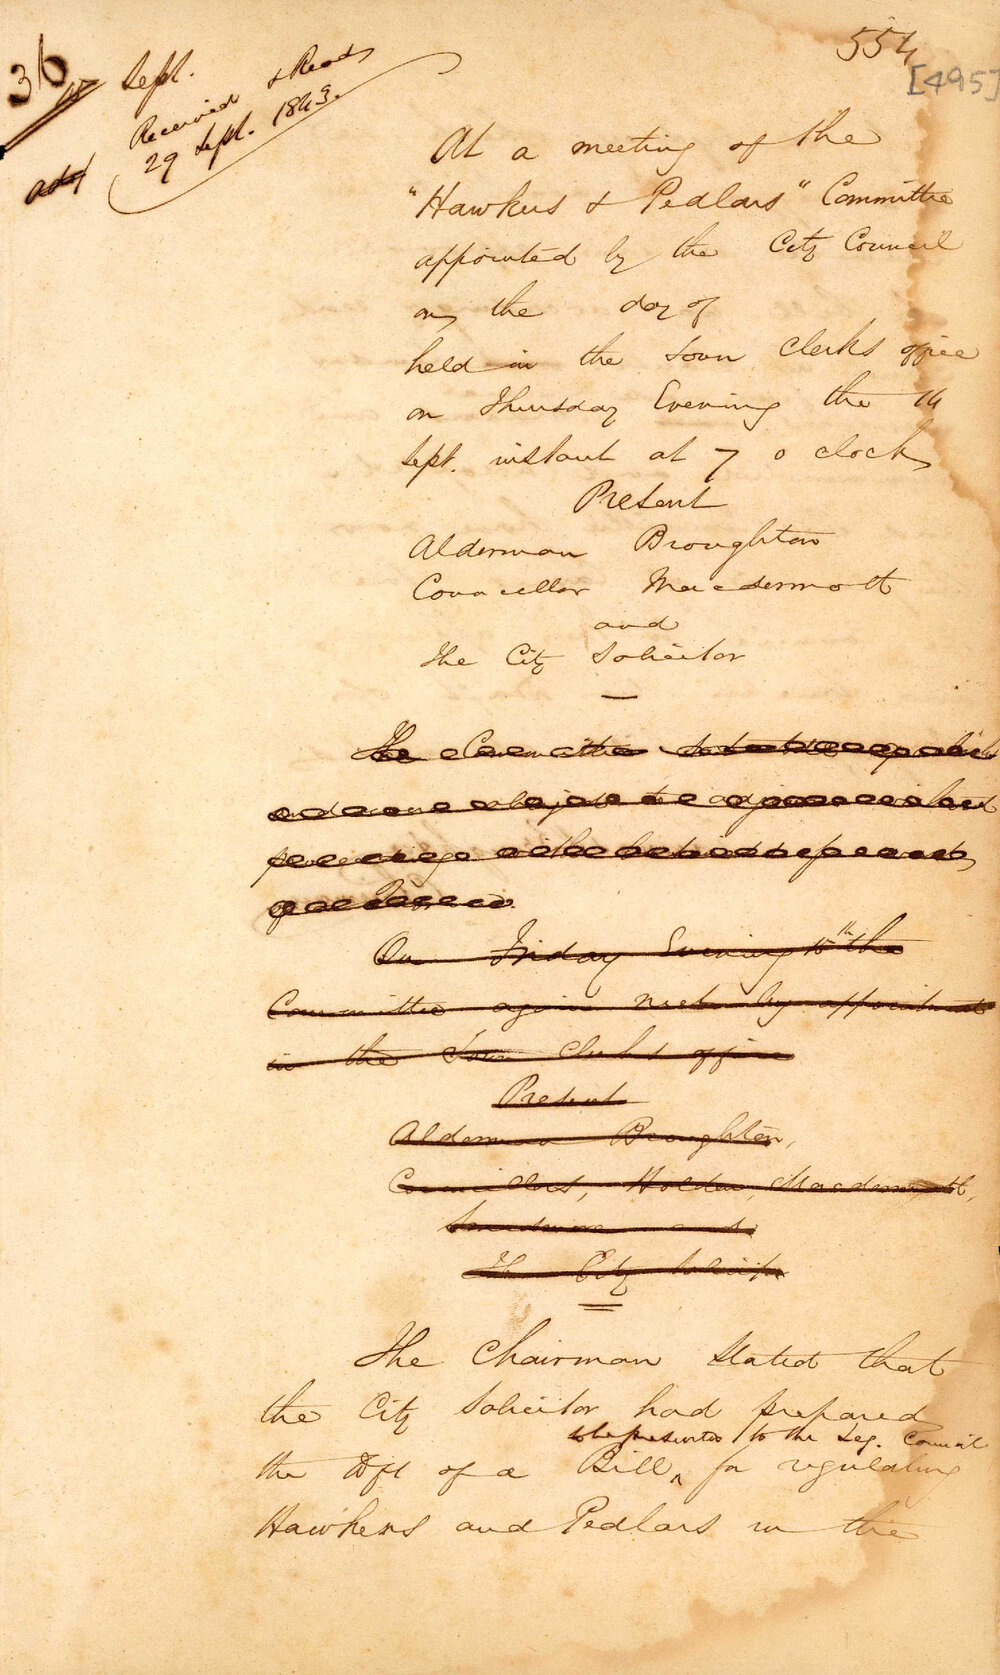 36
Sept.
Received & Read
29 Sept. 1843.
554
[495]
At a meeting of the
"Hawkers & Pedlars" Committee
appointed by the City Council
on the day of
held in the Town Clerks office
on Thursday Evening the 14
Sept. instant at 7 o clock
Present
Alderman Broughton
Councellor Macdermott
and
The City Solicitor
The Committee
On Friday Evening 15th the
Committee again met by appointment
in the Town Clerks office
Present
Alderman Broughton,
Councillors, Holden, Macdermott,
and
The City Solicitor
The Chairman stated that
the City Solicitor had prepared
to be presented to the Leg. Council
the Dft of a Bill ^ for regulating
Hawkers and Pedlars in the